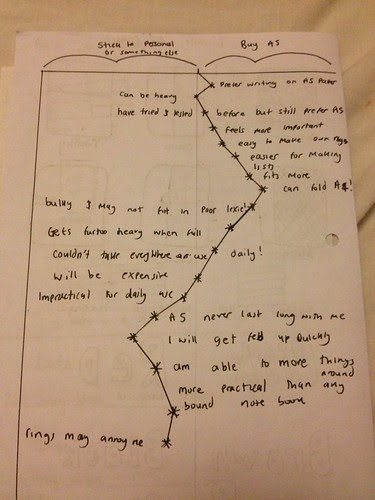 Stick to Personal
or something else
Buy A5
Prefer writing on A5 Paper
Can be heavy
have tried & tested before but still prefer A5
feels more important
easy to make own pages
easier for making
lists
fits more
can fold A4!
bulky & may not fit in Poor
Gets further heavy when full
Couldn't take everywhere or use daily!
will be expensive
Impractical for daily use
A5 never last long with me
I will get fed up quickly
am able to more things
around
more practical than any
bound note book
rings may annoy me